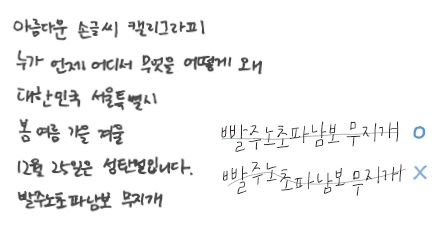 아름다운 손글씨 캘리그라피
누가 언제 어디서 무엇을 어떻게 왜
대한민국 서울특별시
봄 여름 가을 겨울
12월 25일은 성탄절입니다.
빨주노초파남보 무지개
빨주노초파남보 무지개 O
빨주노초파남보 무지개 X